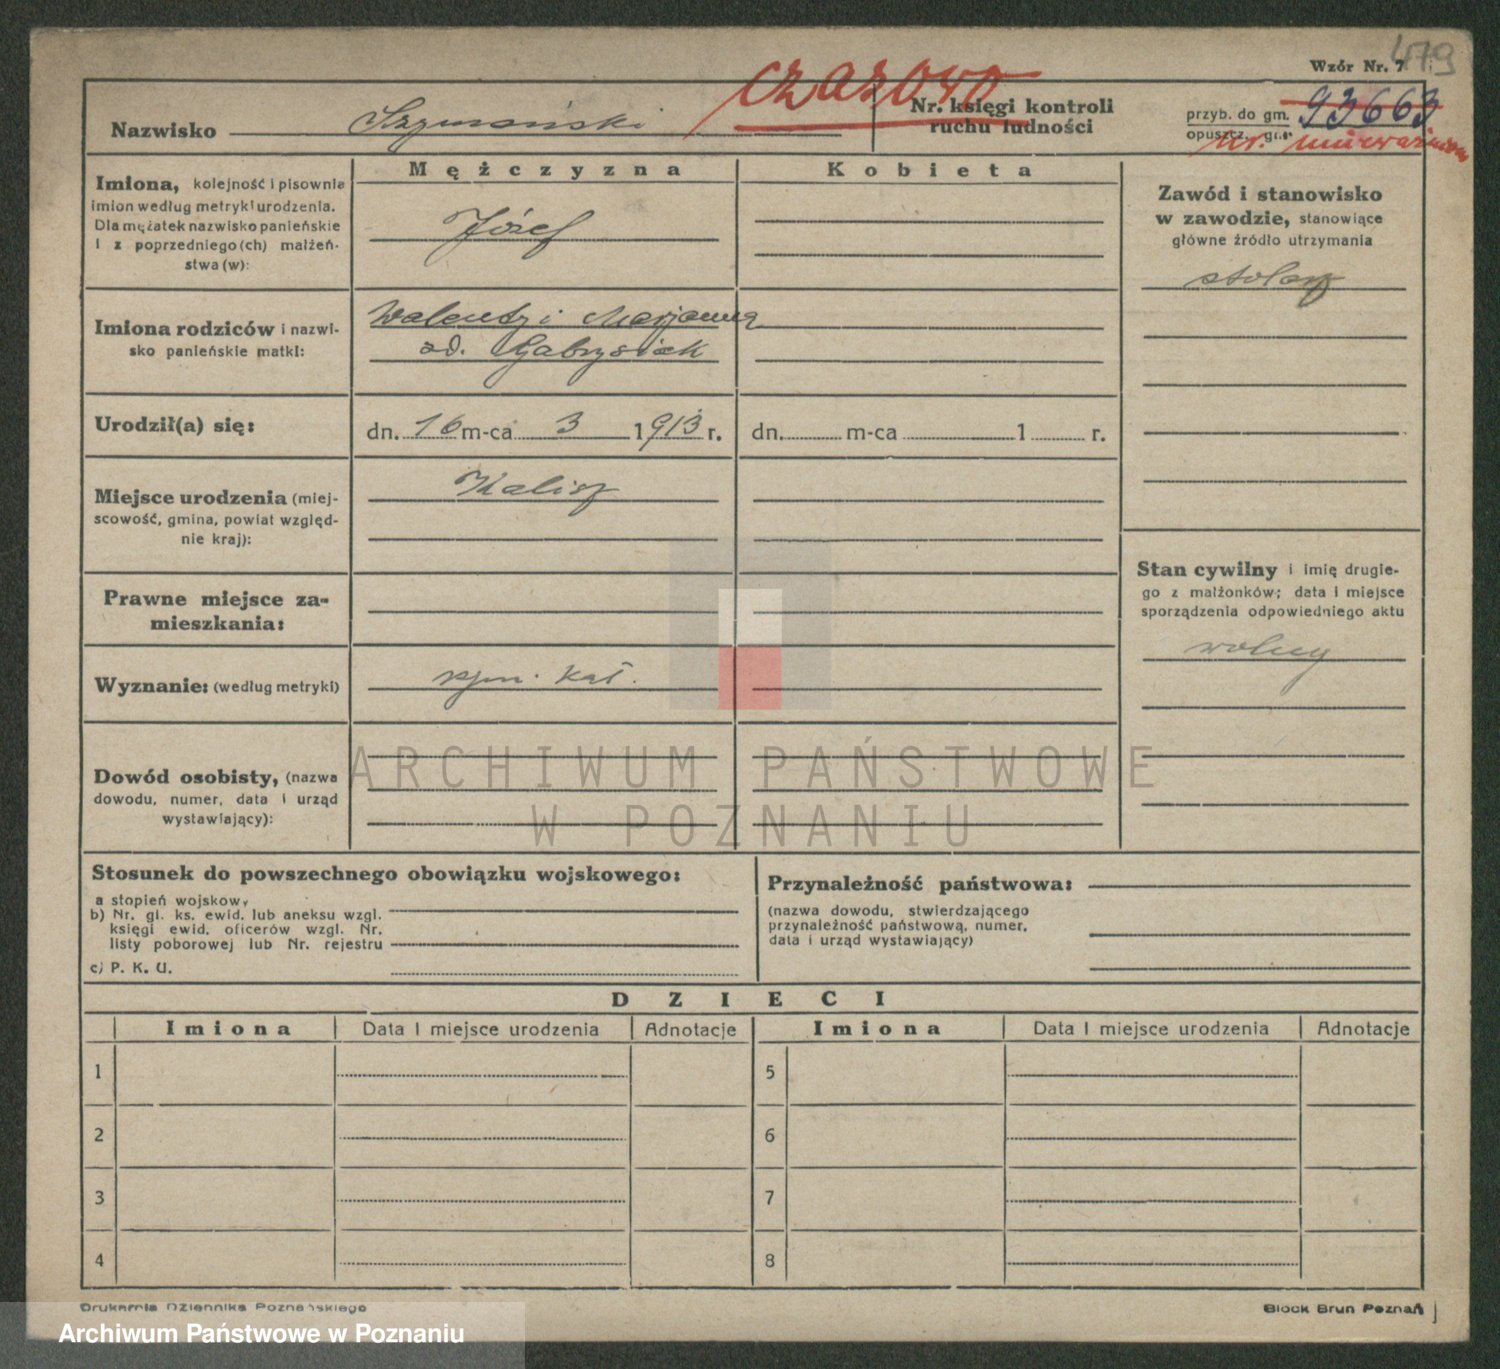 479
Wzór Nr. 7
czasowo
Nazwisko Szymański
Nr. księgi kontroli
ruchu ludności
przyb. do gm. 93663
opuszcz. gm.
nr. unieważniony
Mężczyzna
Kobieta
Imiona, kolejność i pisownie
imion według metryki urodzenia.
Dla mężatek nazwisko panieńskie
i z poprzedniego(ch) małżeń-
stwa(w):
Józef
Zawód i stanowisko
w zawodzie, stanowiące
główne źródło utrzymania
stolarz
Imiona rodziców i nazwi-
sko panieńskie matki:
Walenty i Marjanna
zd. Gabrysiak
Urodził(a) się:
dn. 16 m-ca 3 1913 r.
dn. m-ca 1 r.
Miejsce urodzenia (miej-
scowość, gmina, powiat względ-
nie kraj):
Kalisz
Stan cywilny i imię drugie-
go z małżonków; data i miejsce
sporządzenia odpowiedniego aktu
wolny
Prawne miejsce za-
mieszkania:
Wyznanie: (według metryki)
rzym. kat.
Dowód osobisty, (nazwa
dowodu, numer, data i urząd
wystawiający):
ARCHIWUM PAŃSTWOWE
W POZNANIU
Stosunek do powszechnego obowiązku wojskowego:
a stopień wojskowy
b) Nr. gl. ks. ewid. lub aneksu wzgl.
księgi ewid. oficerów wzgl. Nr.
listy poborowej lub Nr. rejestru
c) P. K. U.
Przynależność państwowa:
(nazwa dowodu, stwierdzającego
przynależność państwową, numer,
data i urząd wystawiający)
DZIECI
Imiona Data i miejsce urodzenia Adnotacje Imiona Data i miejsce urodzenia Adnotacje
1 5
2 6
3 7
4 8
Drukarnia Dziennika Poznańskiego
Block Brun Poznań
Archiwum Państwowe w Poznaniu